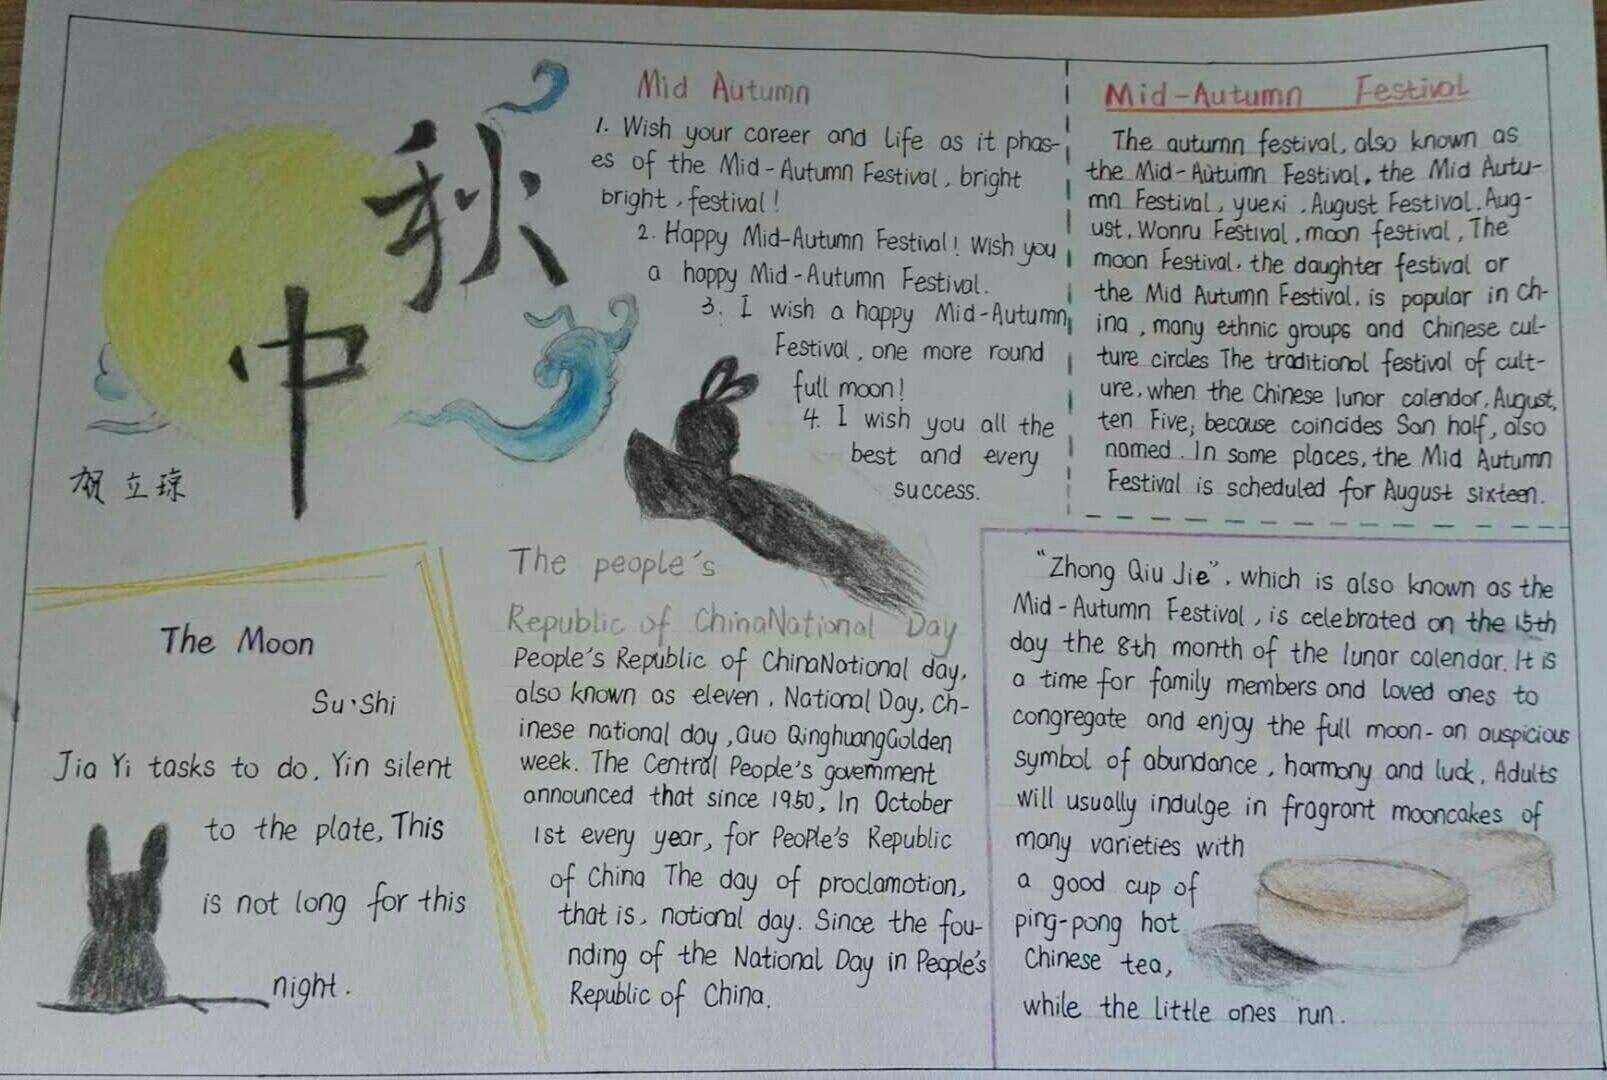 中秋
贺立琼
Mid Autumn
1. Wish your career and life as it phas-
es of the Mid-Autumn Festival, bright
bright, festival!
2. Happy Mid-Autumn Festival! Wish you
a happy Mid-Autumn Festival.
3. I wish a happy Mid-Autumn
Festival, one more round
full moon!
4. I wish you all the
best and every
success.
Mid-Autumn Festival
The autumn festival, also known as
the Mid-Autumn Festival, the Mid Autu-
mn Festival, yuexi, August Festival. Aug-
ust, Wonru Festival, moon festival, The
moon Festival, the daughter festival or
the Mid Autumn Festival, is popular in ch-
ina, many ethnic groups and Chinese cul-
ture circles The traditional festival of cult-
ure, when the Chinese lunar calendor, August,
ten Five; because coincides San half, also
named. In some places, the Mid Autumn
Festival is scheduled for August sixteen.
The Moon
Su·Shi
Jia Yi tasks to do, Yin silent
to the plate, This
is not long for this
night.
The people's
Republic of ChinaNational Day
People's Republic of ChinaNational day,
also known as eleven, National Day, Ch-
inese national day, Guo QinghuangGolden
week. The Central People's government
announced that since 1950, In October
1st every year, for People's Republic
of China The day of proclamation,
that is, national day. Since the fou-
nding of the National Day in People's
Republic of China.
"Zhong Qiu Jie", which is also known as the
Mid-Autumn Festival, is celebrated on the 15th
day the 8th month of the lunar calendar. It is
a time for family members and loved ones to
congregate and enjoy the full moon - an auspicious
symbol of abundance, harmony and luck, Adults
will usually indulge in fragrant mooncakes of
many varieties with
a good cup of
ping-pong hot
Chinese tea,
while the little ones run.